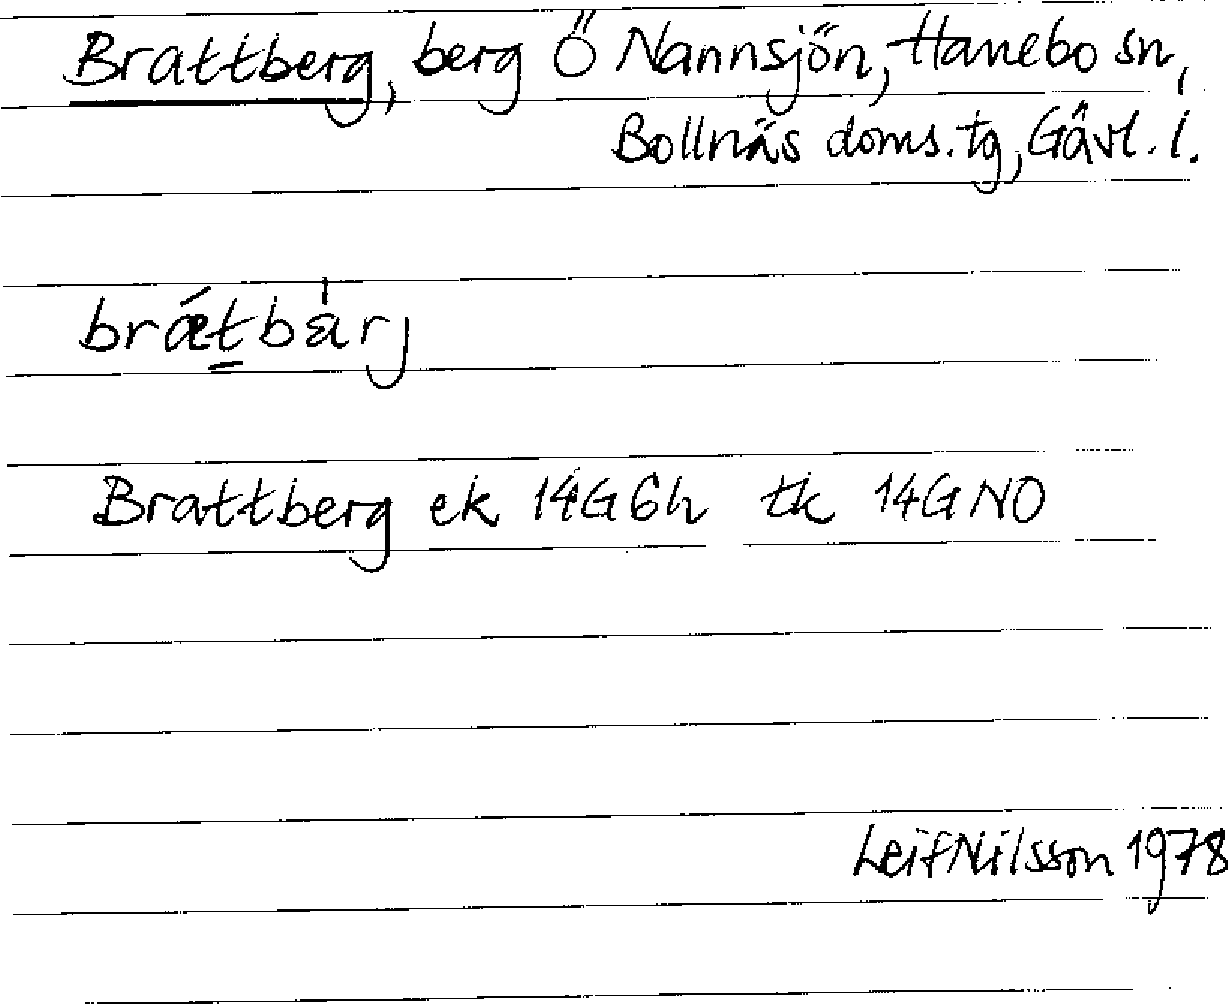 Brattberg, berg Ö Nannsjön, Hanebo sn,
Bollnäs doms. tg, Gävl. l.
brǽt̠bàrj
Brattberg ek 14G6h tk 14GNO
Leif Nilsson 1978